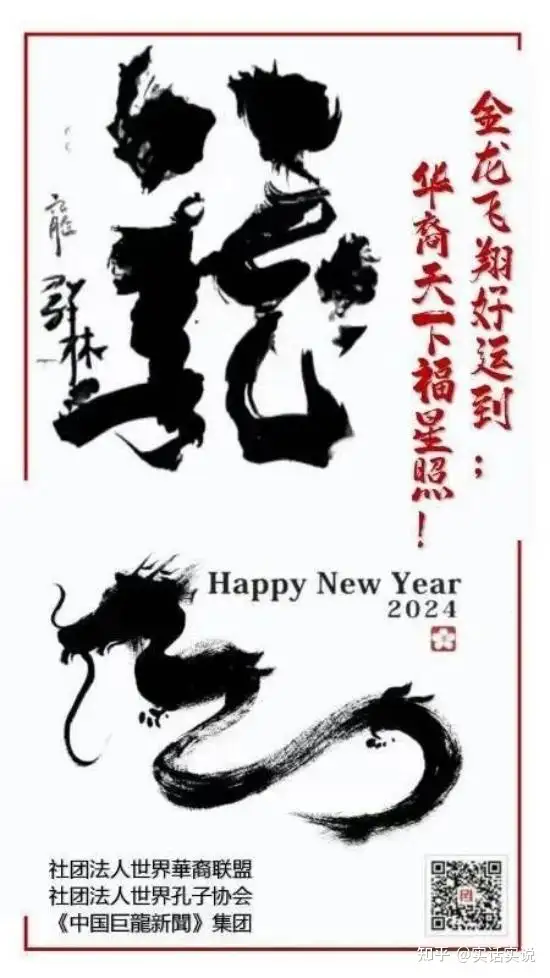 龍
金龙飞翔好运到；
华裔天下福星照！
Happy New Year
2024
社团法人世界華裔联盟
社团法人世界孔子协会
《中国巨龍新聞》集团
知乎 @实话实说